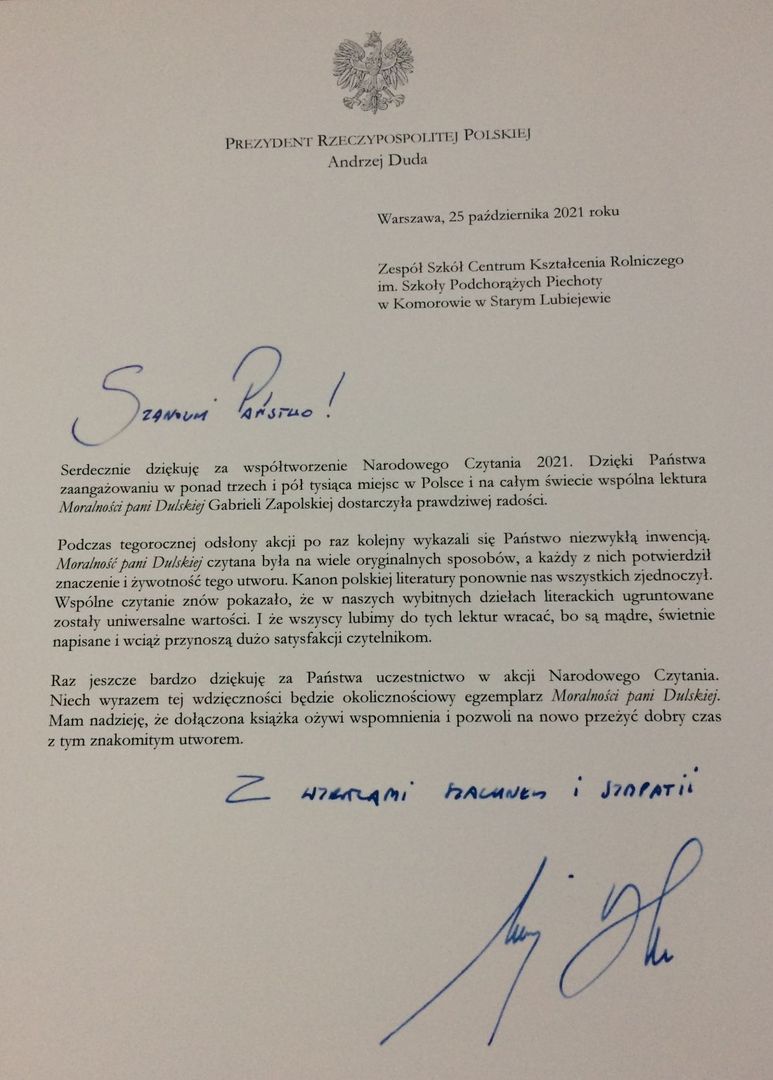 PREZYDENT RZECZYPOSPOLITEJ POLSKIEJ
Andrzej Duda
Warszawa, 25 października 2021 roku
Zespół Szkół Centrum Kształcenia Rolniczego
im. Szkoły Podchorążych Piechoty
w Komorowie w Starym Lubiejewie
Szanowni Państwo!
Serdecznie dziękuję za współtworzenie Narodowego Czytania 2021. Dzięki Państwa
zaangażowaniu w ponad trzech i pół tysiąca miejsc w Polsce i na całym świecie wspólna lektura
Moralności pani Dulskiej Gabrieli Zapolskiej dostarczyła prawdziwej radości.
Podczas tegorocznej odsłony akcji po raz kolejny wykazali się Państwo niezwykłą inwencją.
Moralność pani Dulskiej czytana była na wiele oryginalnych sposobów, a każdy z nich potwierdził
znaczenie i żywotność tego utworu. Kanon polskiej literatury ponownie nas wszystkich zjednoczył.
Wspólne czytanie znów pokazało, że w naszych wybitnych dziełach literackich ugruntowane
zostały uniwersalne wartości. I że wszyscy lubimy do tych lektur wracać, bo są mądre, świetnie
napisane i wciąż przynoszą dużo satysfakcji czytelnikom.
Raz jeszcze bardzo dziękuję za Państwa uczestnictwo w akcji Narodowego Czytania.
Niech wyrazem tej wdzięczności będzie okolicznościowy egzemplarz Moralności pani Dulskiej.
Mam nadzieję, że dołączona książka ożywi wspomnienia i pozwoli na nowo przeżyć dobry czas
z tym znakomitym utworem.
Z wyrazami szacunku i sympatii